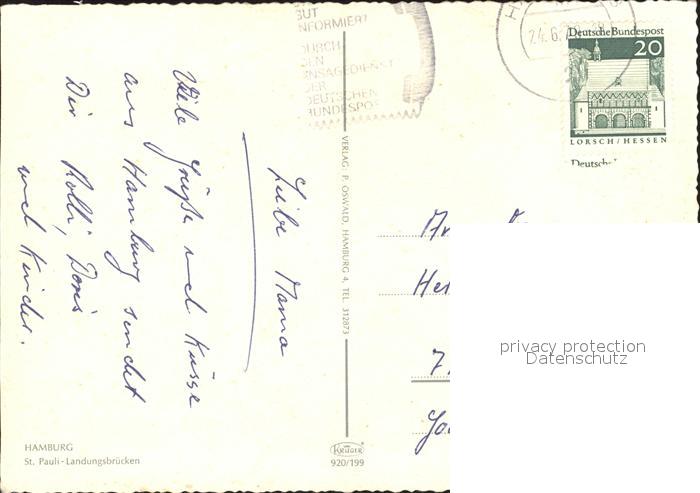 Liebe Mama
Viele Grüße und Küsse
aus Hamburg sendet
Dir Rolli, Doris
und Kinder.
HAMBURG
St. Pauli-Landungsbrücken
VERLAG P. OSWALD, HAMBURG 4, TEL. 312873
KRÜGER
920/199
GUT
INFORMIERT
DURCH
DEN
ANSAGEDIENST
DER
DEUTSCHEN
BUNDESPOST
24.6.
Deutsche Bundespost
20
LORSCH/HESSEN
Deutsch
7
privacy protection
Datenschutz